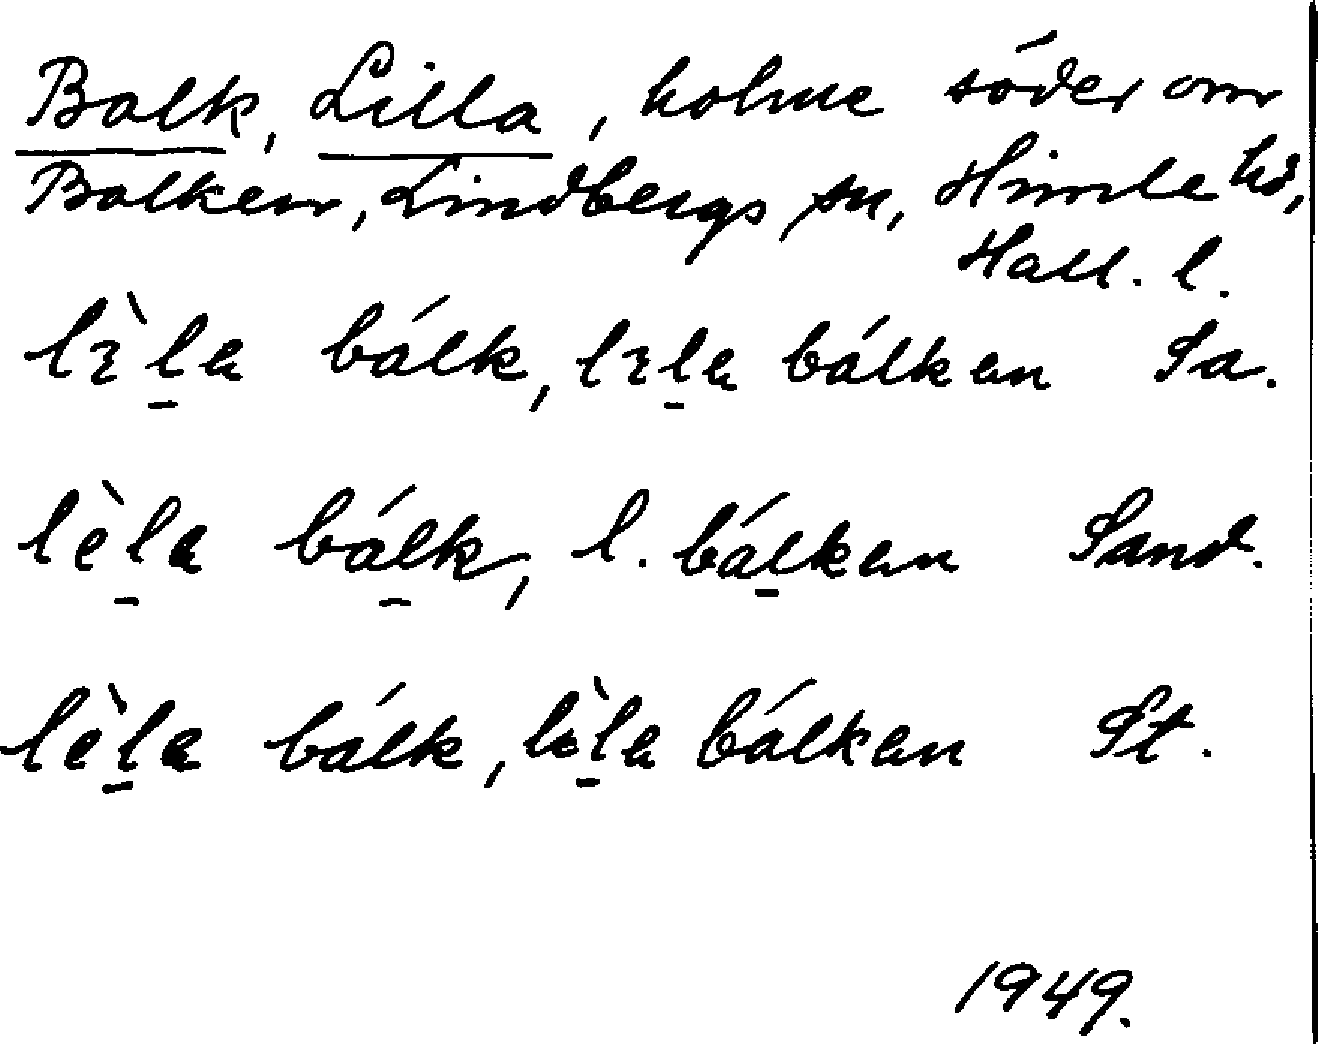 Balk, Lilla, holme söder om
Balken, Lindbergs sn, Himle hd,
Hall. l.
lɪ̀l̠a bálk, lɪl̠a bálkan Sa.
lèl̠a bál̠k, l. bál̠kan Sand.
lèl̠a bálk, lèl̠a bálkan St.
1949.